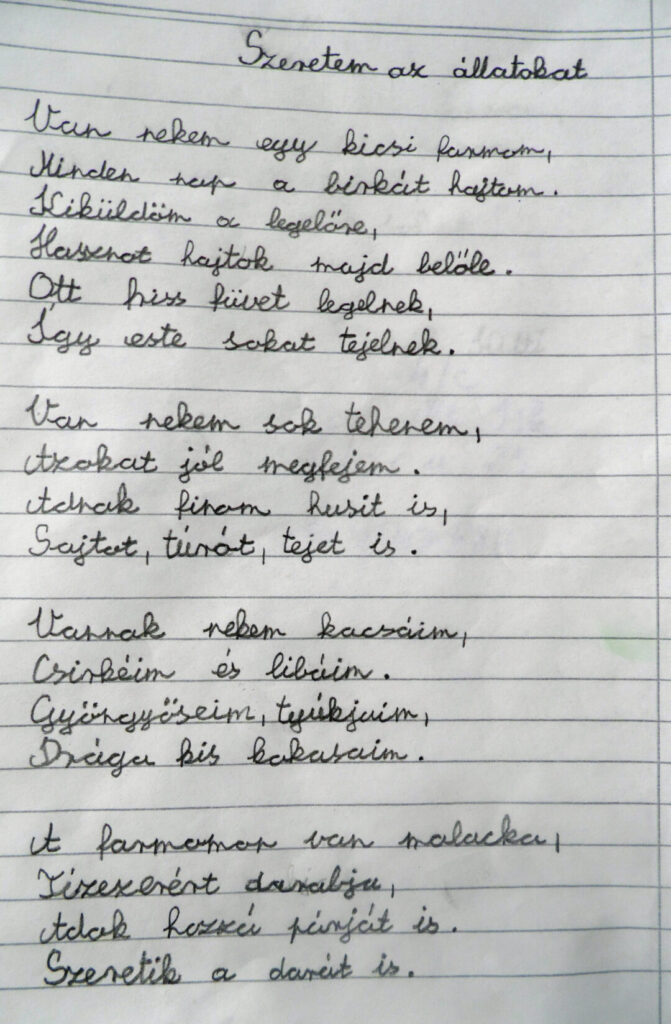 Szeretem az állatokat
Van nekem egy kicsi farmom,
Minden nap a birkát hajtom.
Kiküldöm a legelőre,
Hasznot hajtok majd belőle.
Ott friss füvet legelnek,
Így este sokat tejelnek.
Van nekem sok tehenem,
Azokat jól megfejem.
Adnak finom husit is,
Sajtot, túrót, tejet is.
Vannak nekem kacsáim,
Csirkéim és libáim.
Gyöngyöseim, tyúkjaim,
Drága kis kakasaim.
A farmomon van malacka,
Tízezerért darabja,
Adok hozzá párját is.
Szeretik a darát is.